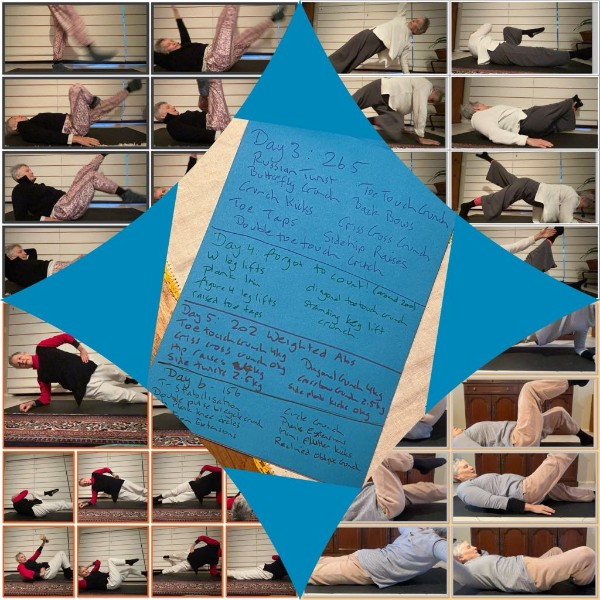 Day 3: 265
Russian Twist
Butterfly Crunch
Toe Touch Crunch
Duck Bows
Crunch Kicks
Criss Cross Crunch
Toe Taps
Sidehip Raises
Double toe touch
Day 4 forgot to count! (around 200)
W leg lifts
plank
figure 4 leg lifts
raised toe taps
diagonal toe touch crunch
standing leg lift
crunch
Day 5: 202 Weighted Abs
Toe touch crunch 4kg
Criss cross crunch 0kg
Hip raises 4kg
Side twists 2.5kg
Diagonal Crunch 4kg
Crossbow Crunch 2.5kg
Side plank kicks 0kg
Day 6 - 156
T-stabilisation
Double pulse bicycle crunch
Plank knee circles
Extensions
Circle Crunch
Prone Extensions
Prone flutter kicks
Reclined oblique Crunch